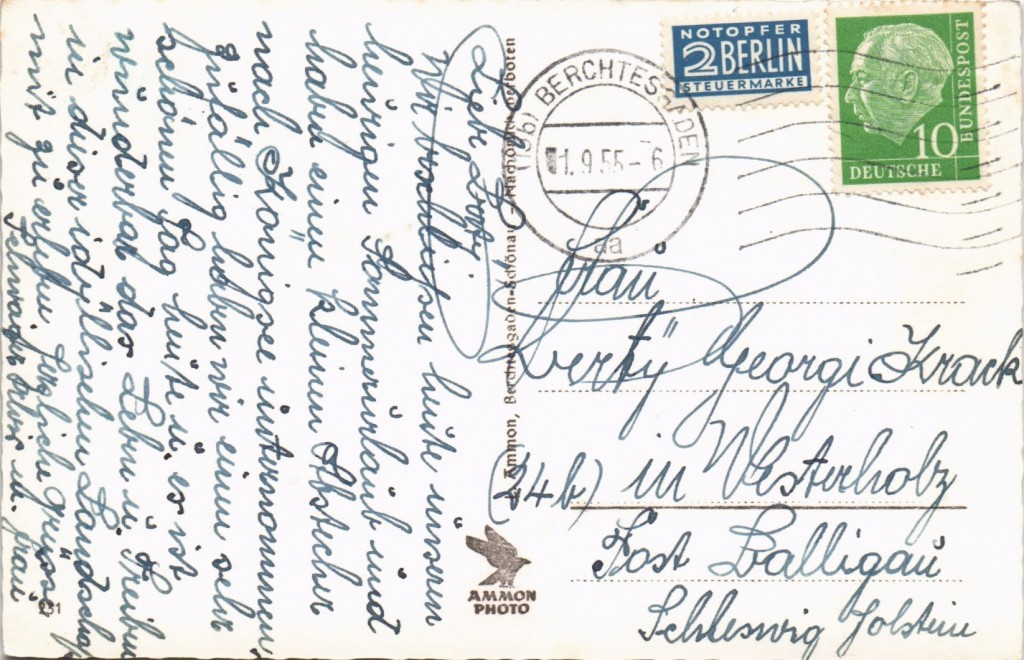 NOTOPFER
2 BERLIN
STEUERMARKE
BUNDESPOST
10
DEUTSCHE
(13b) BERCHTESGADEN
1.9.55-6
aa
Wir beschliessen heute unseren
heurigen Sommerurlaub und
haben einen kleinen Abstecher
nach Königsee unternommen
Zufällig haben wir einen sehr
schönen Tag heute u. es ist
wunderbar das Leben u. Treiben
in dieser idyllischen Landschaft
mit zu erleben. Herzliche Grüsse
Schwager u. Frau
231
Ammon, Berchtesgaden-Schönau - Nachdruck verboten
AMMON
PHOTO
Frau
Georgi Krack
(24b) in Westerholz
Post Balligau
Schleswig Holstein